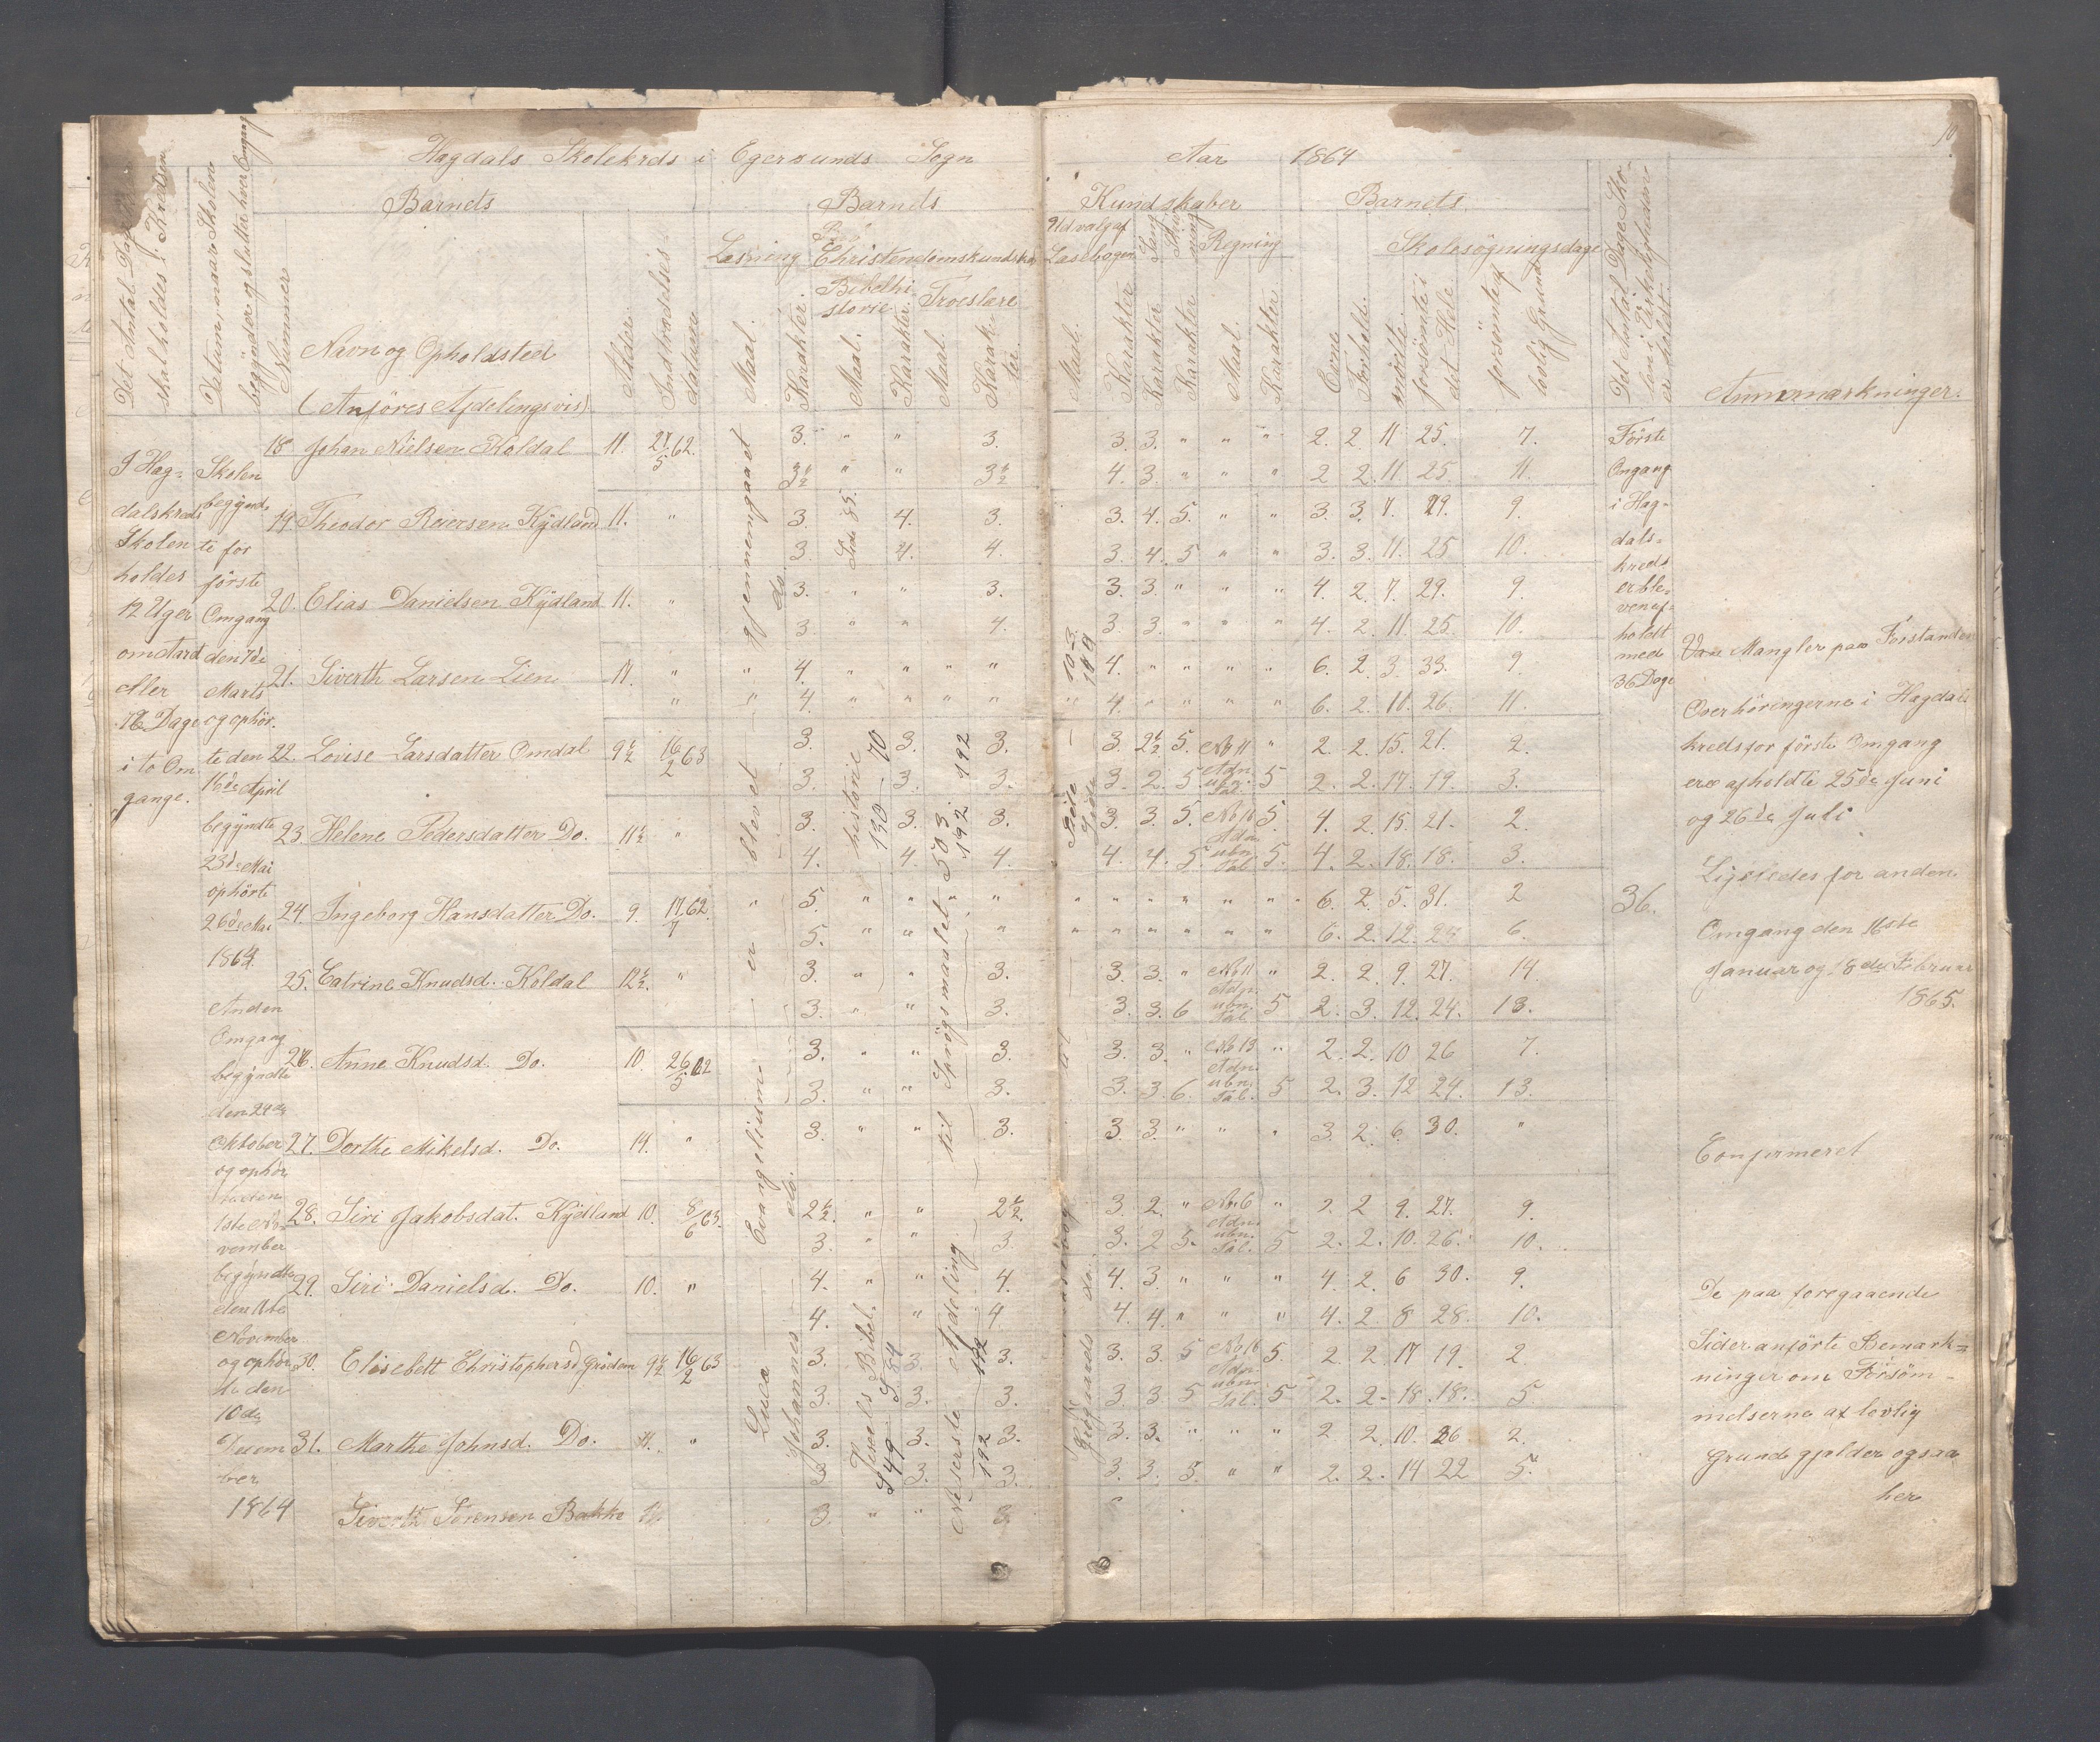 Hagdals Skolekrds i Egersunds Sogn Aar 1864
10
Barnets Barnets Kundskaber Barnets
Det Antal Dage
skal holdes i Kredsen
Datum, naar Skolen
begynder og slutter hver Omgang
Nummer
Navn og Opholdsted
(Anføres Afdelingsvis)
Alder.
Indtrædelses
datum
Læsning
Maal.
Karakter.
Christendomskundskab
Bibelhi
storie
Maal.
Karakter.
Troeslære
Maal.
Karak
ter.
Udvalg af
Læsebogen
Maal.
Karakter
Sang
Karakter
Skriv
ning
Karakter
Regning
Maal.
Karakter.
Evne
Forhold.
Skolesøgningsdage
mødte.
forsömte i
det Hele.
forsömte af
lovlig Grund
Det Antal Dage Sko-
len i Virkeligheden
er holdt.
Anmærkninger.
18 Johan Nielsen Koldal 11. 27/5 62. 3. " " 3. 3. 3. " " " 2. 2 11 25. 7.
3½ " " 3½ 4. 3. " " " 2 2. 11 25. 11.
19. Theodor Reiersen Kÿdland 11. " 3. 4. 3. 3. 4. 5. " " 3. 3. 7. 29. 9.
3. 4. 4. 3. 4. 5 " " 3. 3. 11. 25 10.
20. Elias Danielsen Kÿdland 11. " 3. " " 3. 3. 3. " " " 4. 2. 7. 29. 9.
3. " " 4. 3. 3. " " " 4. 2. 11. 25. 10.
21. Siverth Larsen Lien 11. " " 4. " " " " 4. " " " " 6. 2. 3. 33. 9.
" " 4. " " " " " 4. " " " " 6. 2. 10. 26. 11.
22. Lovise Larsdatter Omdal 9½ 16/2 63 3. 3. 3. 3. 2½ 5. No 11 " 2. 2. 15. 21. 2.
3. 3. 3. 3. 2. 5 Adn. ubn. Tal. 5 2. 2. 17. 19. 3.
23. Helene Pedersdatter Do. 11½ " 3. 3. 3. 3. 3. 5. No 16 5. 4. 2. 15. 21. 2.
4. 4. 4. 4. 4. 5 Adn. ubn. Tal 5. 4. 2. 18. 18. 3.
24. Ingeborg Hansdatter Do. 9. 17/7 62. " 5. " " " " " " " " " " 6. 2. 5. 31. 2
5. " " " " " " " " " 6. 2. 12. 24 6.
25. Catrine Knudsd. Koldal 12½. " 3. " " 3. 3. 3. " No 11 " 2. 2. 9. 27. 14.
3. " " 3. 3. 3. 6 Adn. ubn. Tal. 5 2. 3. 12. 24. 13.
26. Anne Knudsd. Do. 10. 26/5 62 3. " " 3. 3. 3. " No 13 " 2. 2. 10 26 7.
3. " " 3. 3. 3. 6. Adn. ubn. Tal. 5 2. 3. 12 24. 13.
27. Dorthe Mikelsd. Do. 14. " 3. " " 3. 3. 3. " " " 3. 2. 6. 30. "
28. Siri Jakobsdat. Kÿdland 10. 8/6 63. 2½. " " 2½. 3. 2. " No. 6 " 2. 2 9. 27. 9.
3. " " 3. 3. 2 5. Adn. ubn. Tal. 5 2. 2. 10. 26. 10.
29. Siri Danielsd. Do. 10. " 4. " " 4. 4. 3. " " " 4. 2. 6 30. 9.
4. " 4. 4. 4. " " " 4. 2 8 28. 10.
30. Elisebett Christophersd Grödem 9½ 16/2 63 3. 3. 3. 3. 3. 5 No 16 5. 2. 2 17 19. 2
3. 3. 3. 3. 3. 5 Adn. ubn. Tal. 5 2. 2. 18. 18. 5
31. Marthe Johnsd. Do. 11. " 3. 3. 3. 3. 3. " " " 2. 2. 10. 26 2.
3 3. 3. 3. 3. 5. " " 2. 2. 14 22 5.
Siverth Sørensen Bakke 3. " " 3.
I Hag-
dalskreds
Skolen
holdes
12 Uger
om Aaret
eller
72 Dage
i to Om
gange.
Skolen
begynd-
te for
første
Omgang
den 7de
Marts
og ophør.
te den
16de April
begyndte
23de Mai
ophörte
26de Mai
1864.
Anden
Omgang
begyndte
den 24de
Oktober
og ophør
te den
1ste No
vember
begyndte
den 11te
November
og ophør
te den
10de
Decem
ber
1864
Lucæ Evangelium er blevet gjennemgaaet
Johannes do. do.
Side 85.
historie
130 70
Vusells Bibel.
S 49 S 84
Neserste Afdeling til Spørgsmaalet 503
192 192 192 192
10-3.
119
Side
Side
til
Første
Omgang
i Hag-
dals-
kreds
er ble-
ven af-
holdt
med
36 Dage
36.
Mangler paa Forstander
Overhøringerne i Hagdals
kreds for første Omgang
ere afholdte 25de Juni
og 26de Juli
Ligeledes for anden
Omgang den 16ste
Januar og 18de Februar
1865.
Confirmeret
De paa foregaaende
Sider anförte Bemærk=
ninger om Forsöm-
melserne af lovlig
Grund gjælder ogsaa
her